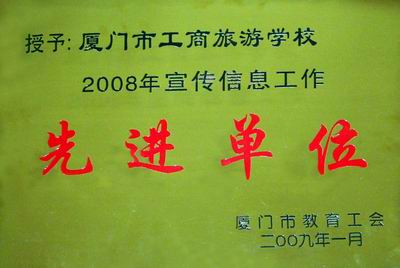 授予:厦门市工商旅游学校
2008年宣传信息工作
先进单位
厦门市教育工会
二〇〇九年一月